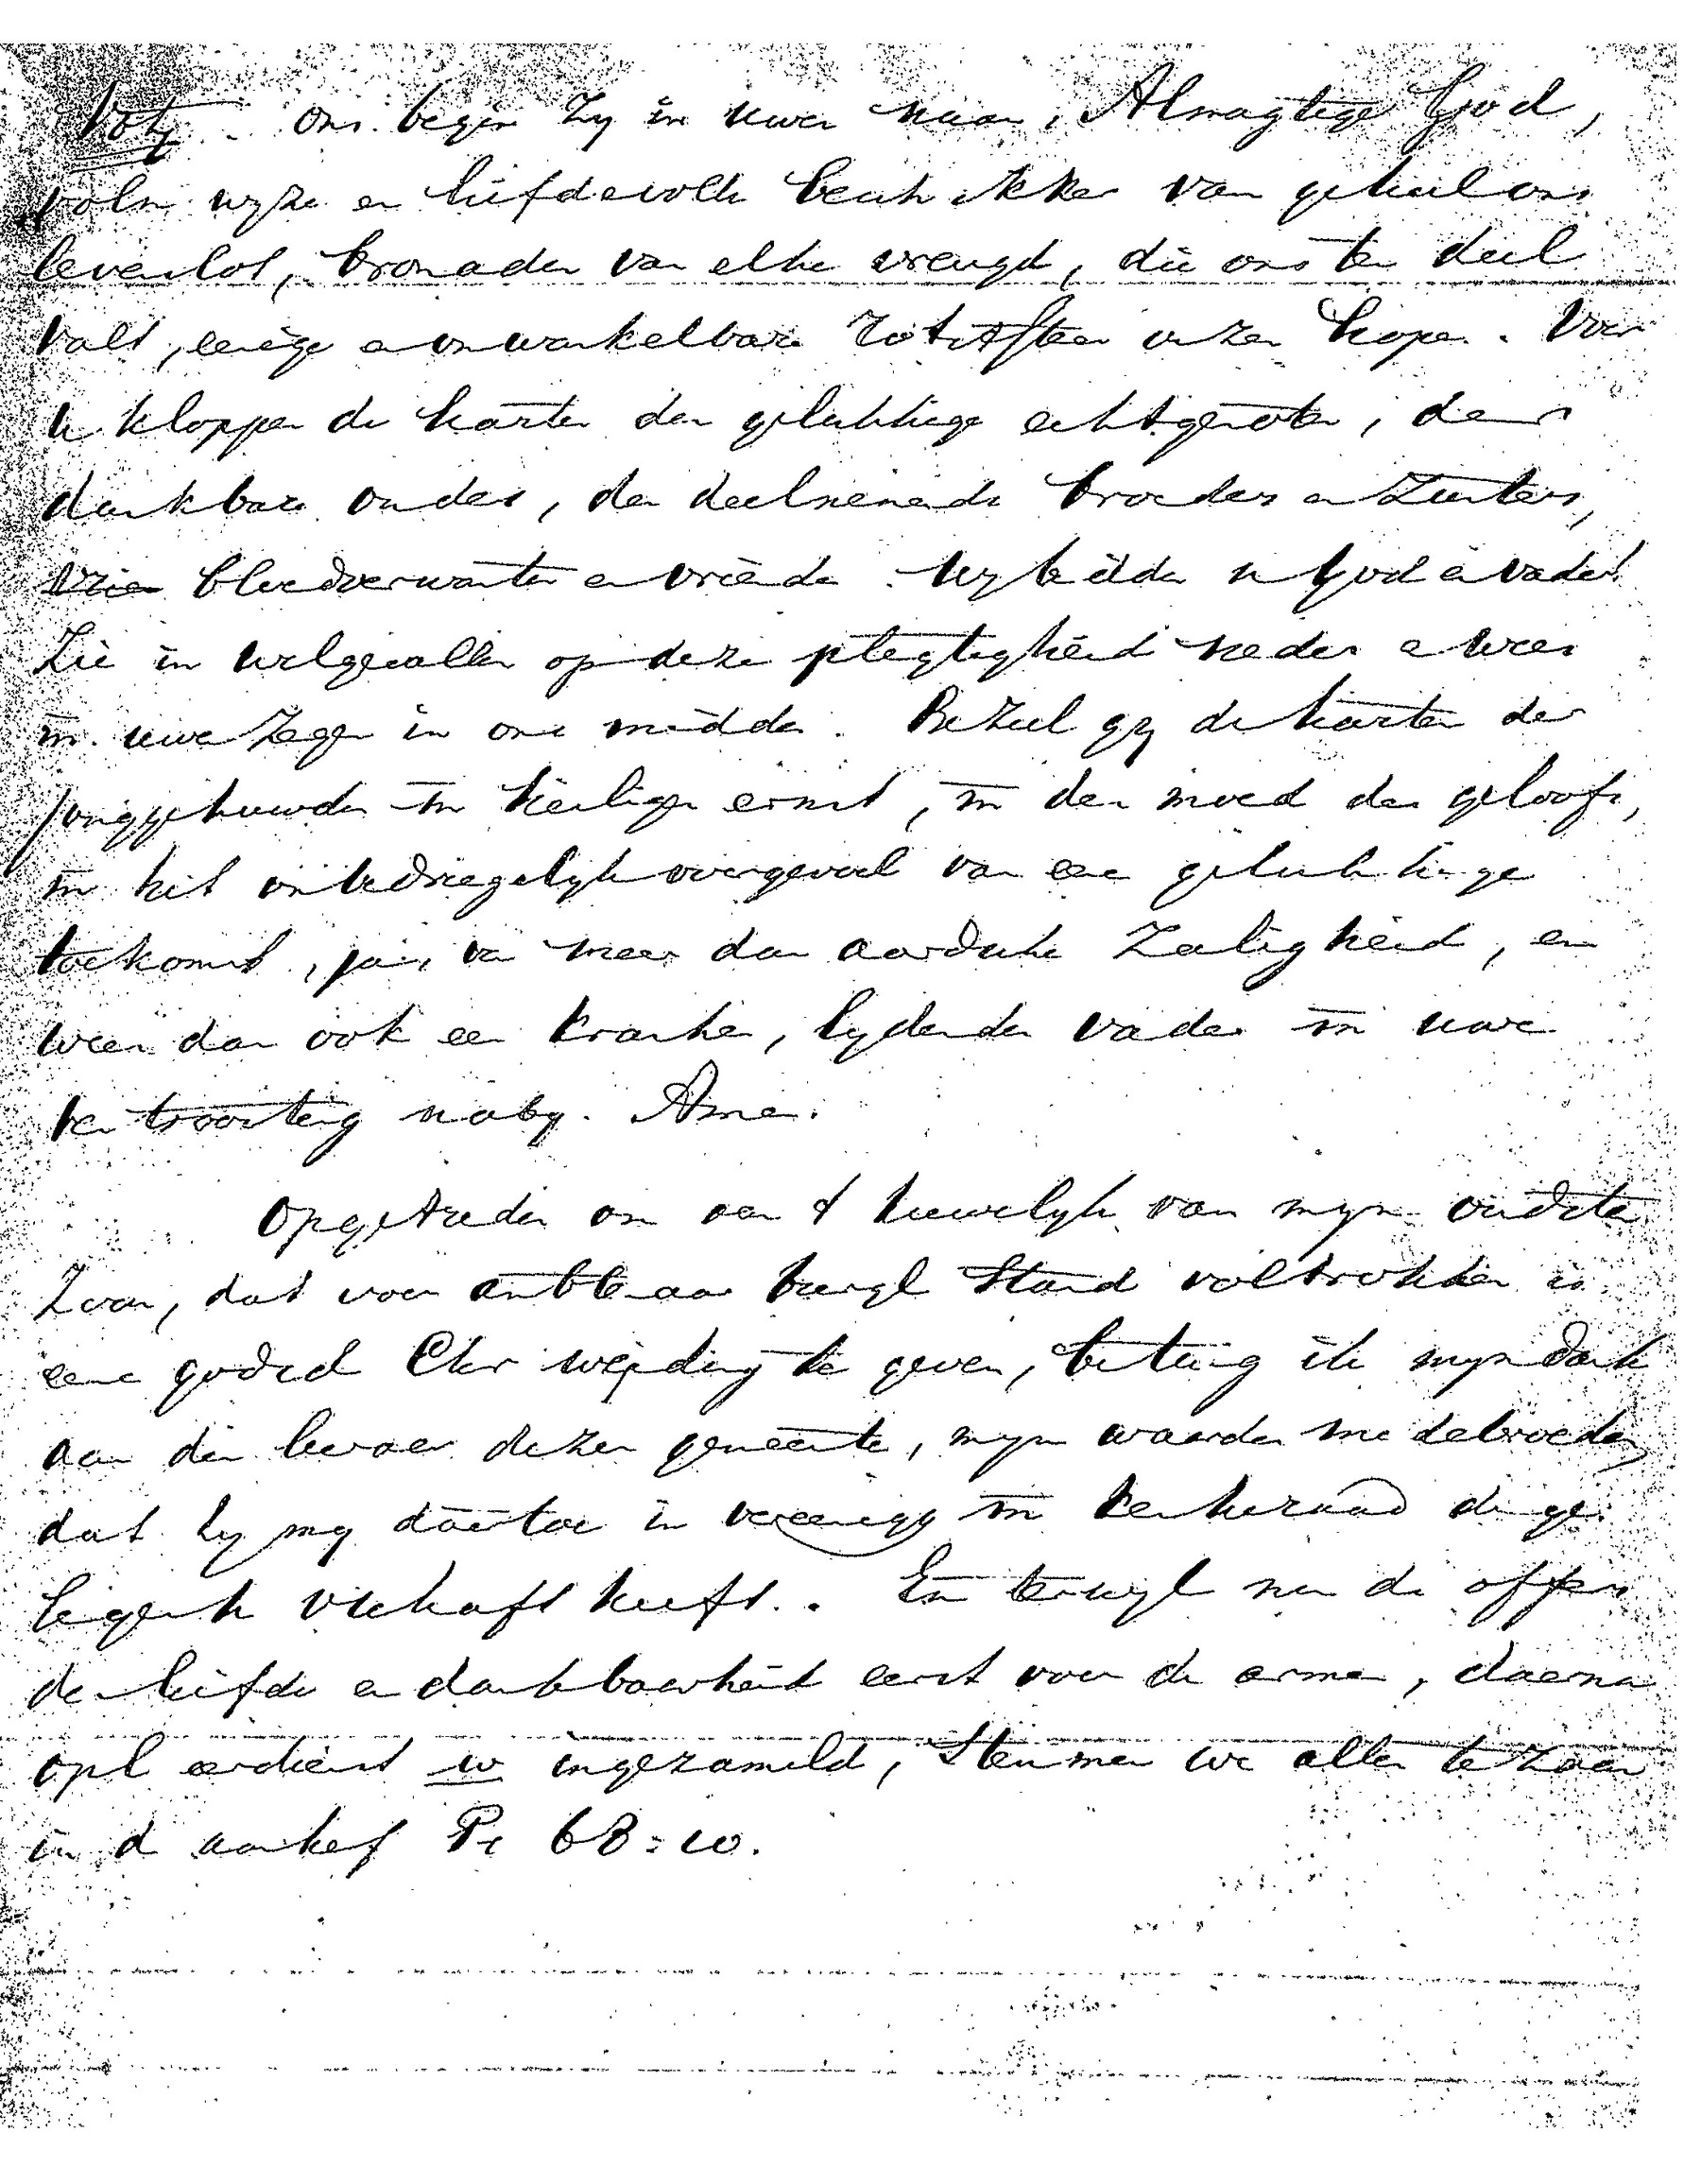 Ons begin zy in uwen naam, Almagtige God,
wyze en liefdevolle beschikker van geheel ons
levenslot, bronader van elke vreugd, die ons ten deel
valt, eenige en onwankelbare rotssteen onzer hope. Voor
U kloppen de harten der gelukkige echtgenoten, der
dankbare ouders, der deelnemende broeders en zusters,
bloedverwanten en vrienden. Wy bidden u God en vader!
Zie in welgevallen op deze plegtigheid neder en wees
m. uwen zegen in ons midden. Beziel gy de harten der
jonggehuwden m heiligen ernst, m den moed des geloofs,
m het onbedriegelyk voorgevoel van eene gelukkige
toekomst, ja, van meer dan aardsche zaligheid, en
wees dan ook een kranken, lydenden vader m uwe
vertroosting naby. Amen.
Opgetreden om aan 't huwelyk van myn oudsten
Zoon, dat voor ambtenaar burgl stand voltrokken is
eene godsd Chr wyding te geven, betuig ik myn dank
aan den leeraar dezer gemeente, myn waarden medebroeder,
dat hy my daartoe in vereenigg m kerkeraad de ge-
legenh verschaft heeft. En terwyl nu de offers
der liefde en dankbaarheid eerst voor de armen, daarna
eerdienst w ingezameld, stemmen we allen te zaam
in d aanhef Ps 68:10.